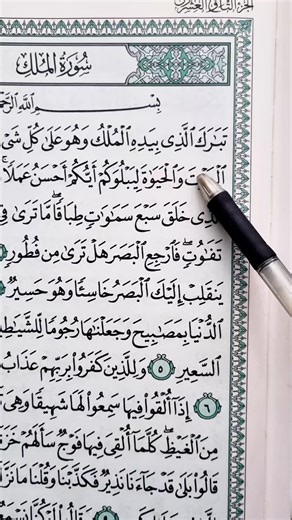 سُورَةُ المُلْكِ
بِسْمِ ٱللَّهِ ٱلرَّحْمَ
تَبَٰرَكَ ٱلَّذِى بِيَدِهِ ٱلْمُلْكُ وَهُوَ عَلَىٰ كُلِّ شَىْ
وَٱلْحَيَوٰةَ لِيَبْلُوَكُمْ أَيُّكُمْ أَحْسَنُ عَمَلًا ۚ
خَلَقَ سَبْعَ سَمَٰوَٰتٍ طِبَاقًا ۖ مَّا تَرَىٰ فِى
تَفَٰوُتٍ ۖ فَٱرْجِعِ ٱلْبَصَرَ هَلْ تَرَىٰ مِن فُطُورٍ
يَنقَلِبْ إِلَيْكَ ٱلْبَصَرُ خَاسِئًا وَهُوَ حَسِيرٌ
ٱلدُّنْيَا بِمَصَٰبِيحَ وَجَعَلْنَٰهَا رُجُومًا لِّلشَّيَٰطِ
ٱلسَّعِيرِ ٥ وَلِلَّذِينَ كَفَرُوا۟ بِرَبِّهِمْ عَذَابُ
٦ إِذَآ أُلْقُوا۟ فِيهَا سَمِعُوا۟ لَهَا شَهِيقًا وَهِىَ
مِنَ ٱلْغَيْظِ ۖ كُلَّمَآ أُلْقِىَ فِيهَا فَوْجٌ سَأَلَهُمْ خَزَ
قَالُوا۟ بَلَىٰ قَدْ جَآءَنَا نَذِيرٌ فَكَذَّبْنَا وَقُلْنَا مَا نَزَّ